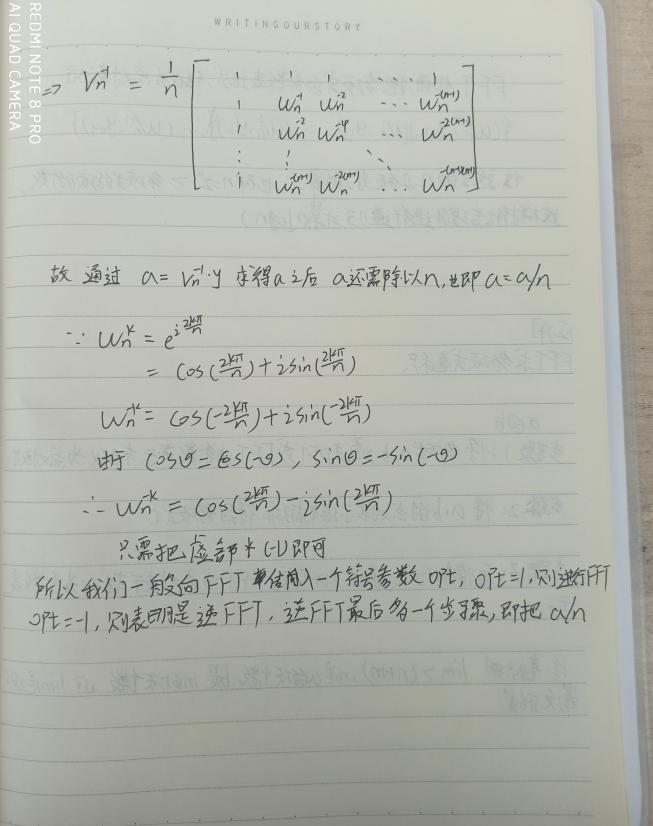 WRITINGOURSTORY
REDMI NOTE 8 PRO
AI QUAD CAMERA
⇒ Vn⁻¹ = 1/n [ 1 1 1 ... 1
1 Wn⁻¹ Wn⁻² ... Wn⁻⁽ⁿ⁻¹⁾
1 Wn⁻² Wn⁻⁴ ... Wn⁻²⁽ⁿ⁻¹⁾
⋮ ⋮ ⋱
1 Wn⁻⁽ⁿ⁻¹⁾ Wn⁻²⁽ⁿ⁻¹⁾ ... Wn⁻⁽ⁿ⁻¹⁾⁽ⁿ⁻¹⁾ ]
故 通过 a = Vn⁻¹·y 求得a之后 a还需除以n,也即 a = a/n
∵ Wn^k = e^(i 2kπ/n)
= cos(2kπ/n) + i sin(2kπ/n)
Wn^-k = cos(-2kπ/n) + i sin(-2kπ/n)
由于 cosθ = cos(-θ), sinθ = -sin(-θ)
∴ Wn^-k = cos(2kπ/n) - i sin(2kπ/n)
只需把虚部 * (-1) 即可
所以我们一般向FFT 传入一个符号参数 opt, opt=1, 则进行FFT
opt=-1, 则表明是逆FFT, 逆FFT最后多一个步骤, 即把 a/n